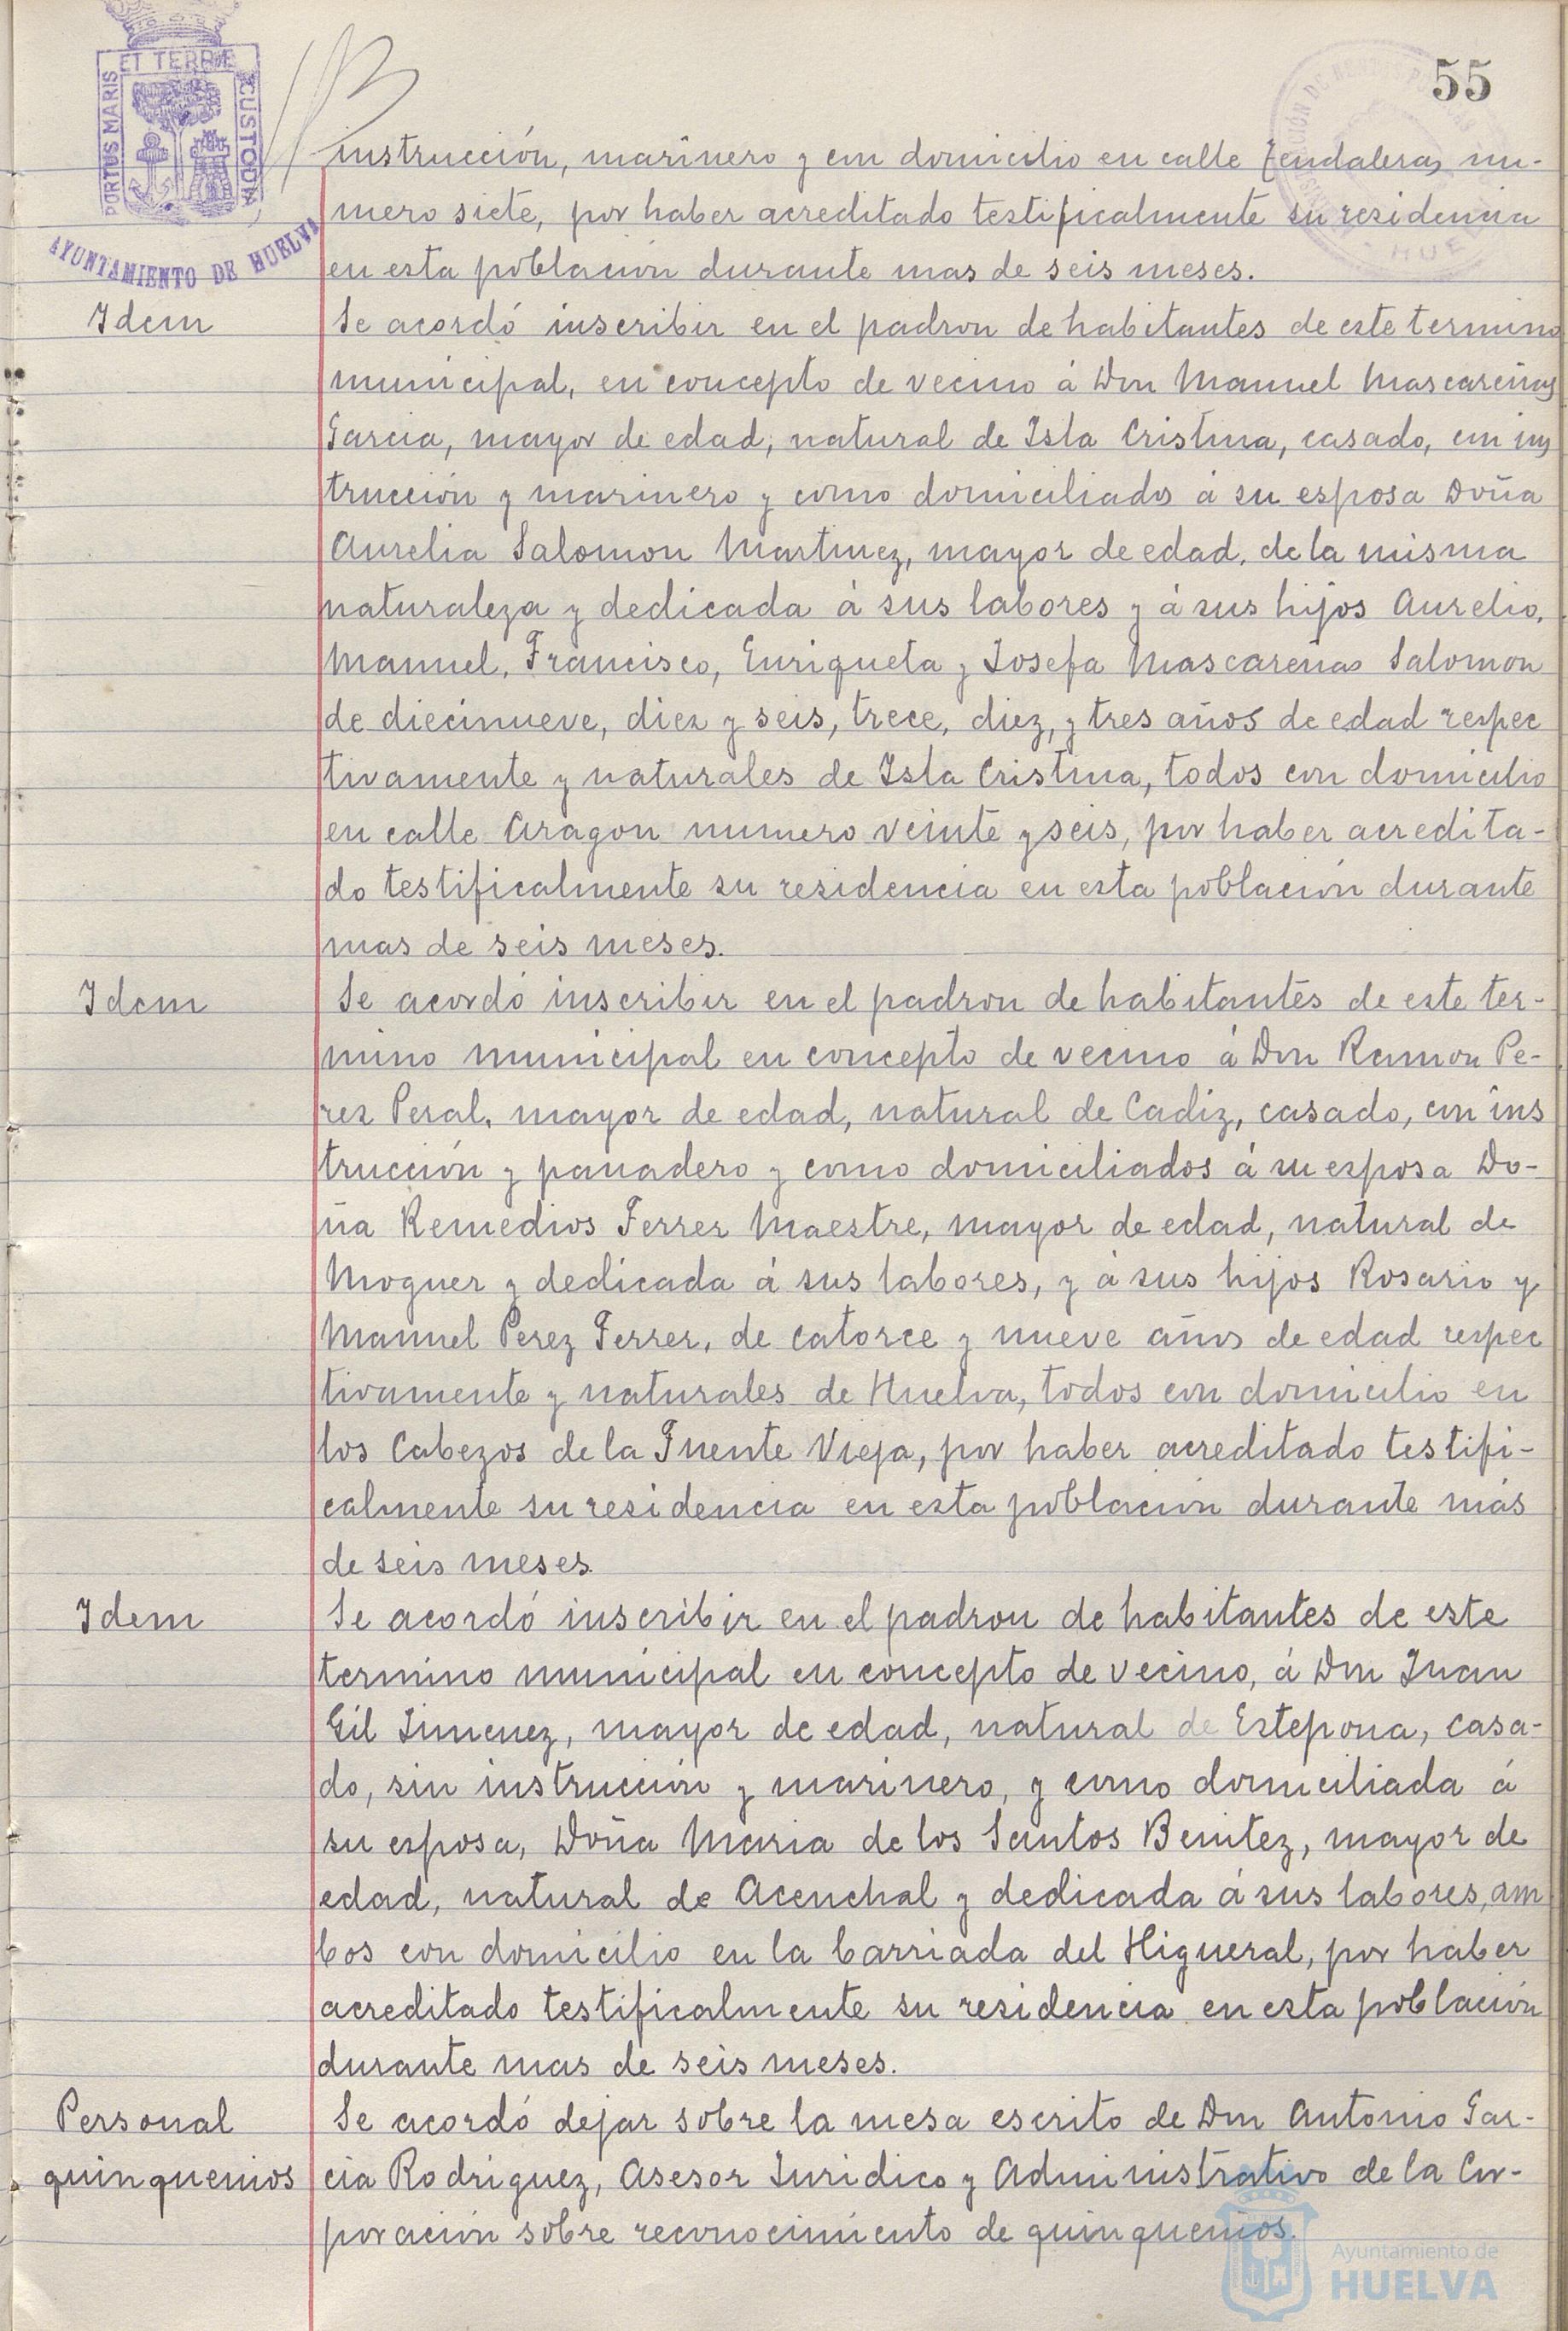 55
PORTUS MARIS ET TERRÆ CUSTODIA
AYUNTAMIENTO DE HUELVA
instrucción, marinero y con domicilio en calle Tendaleras nu-
mero siete, por haber acreditado testificalmente su residencia
en esta población durante mas de seis meses.
Idem Se acordó inscribir en el padron de habitantes de este termino
municipal, en concepto de vecino á Don Manuel Mascareñas
Garcia, mayor de edad, natural de Isla Cristina, casado, con ins
trucción y marinero y como domiciliados á su esposa Doña
Aurelia Salomon Martinez, mayor de edad, de la misma
naturaleza y dedicada á sus labores y á sus hijos Aurelio,
Manuel, Francisco, Enriqueta y Josefa Mascareñas Salomon
de diecinueve, diez y seis, trece, diez, y tres años de edad respec
tivamente y naturales de Isla Cristina, todos con domicilio
en calle Aragon numero veinte y seis, por haber acredita-
do testificalmente su residencia en esta población durante
mas de seis meses.
Idem Se acordó inscribir en el padron de habitantes de este ter-
mino municipal en concepto de vecino á Don Ramon Pe-
rez Peral, mayor de edad, natural de Cadiz, casado, con ins
trucción y panadero y como domiciliados á su esposa Do-
ña Remedios Ferrer Maestre, mayor de edad, natural de
Moguer y dedicada á sus labores, y á sus hijos Rosario y
Manuel Perez Ferrer, de catorce y nueve años de edad respec
tivamente y naturales de Huelva, todos con domicilio en
los Cabezos de la Fuente Vieja, por haber acreditado testifi-
calmente su residencia en esta población durante más
de seis meses.
Idem Se acordó inscribir en el padron de habitantes de este
termino municipal en concepto de vecino, á Don Juan
Gil Jimenez, mayor de edad, natural de Estepona, casa-
do, sin instrucción y marinero, y como domiciliada á
su esposa, Doña Maria de los Santos Benitez, mayor de
edad, natural de Acenchal y dedicada á sus labores, am
bos con domicilio en la barriada del Higueral, por haber
acreditado testificalmente su residencia en esta población
durante mas de seis meses.
Personal Se acordó dejar sobre la mesa escrito de Don Antonio Gar-
quinquenios cia Rodriguez, Asesor Juridico y Administrativo de la Cor-
poración sobre reconocimiento de quinquenios.
Ayuntamiento de
HUELVA